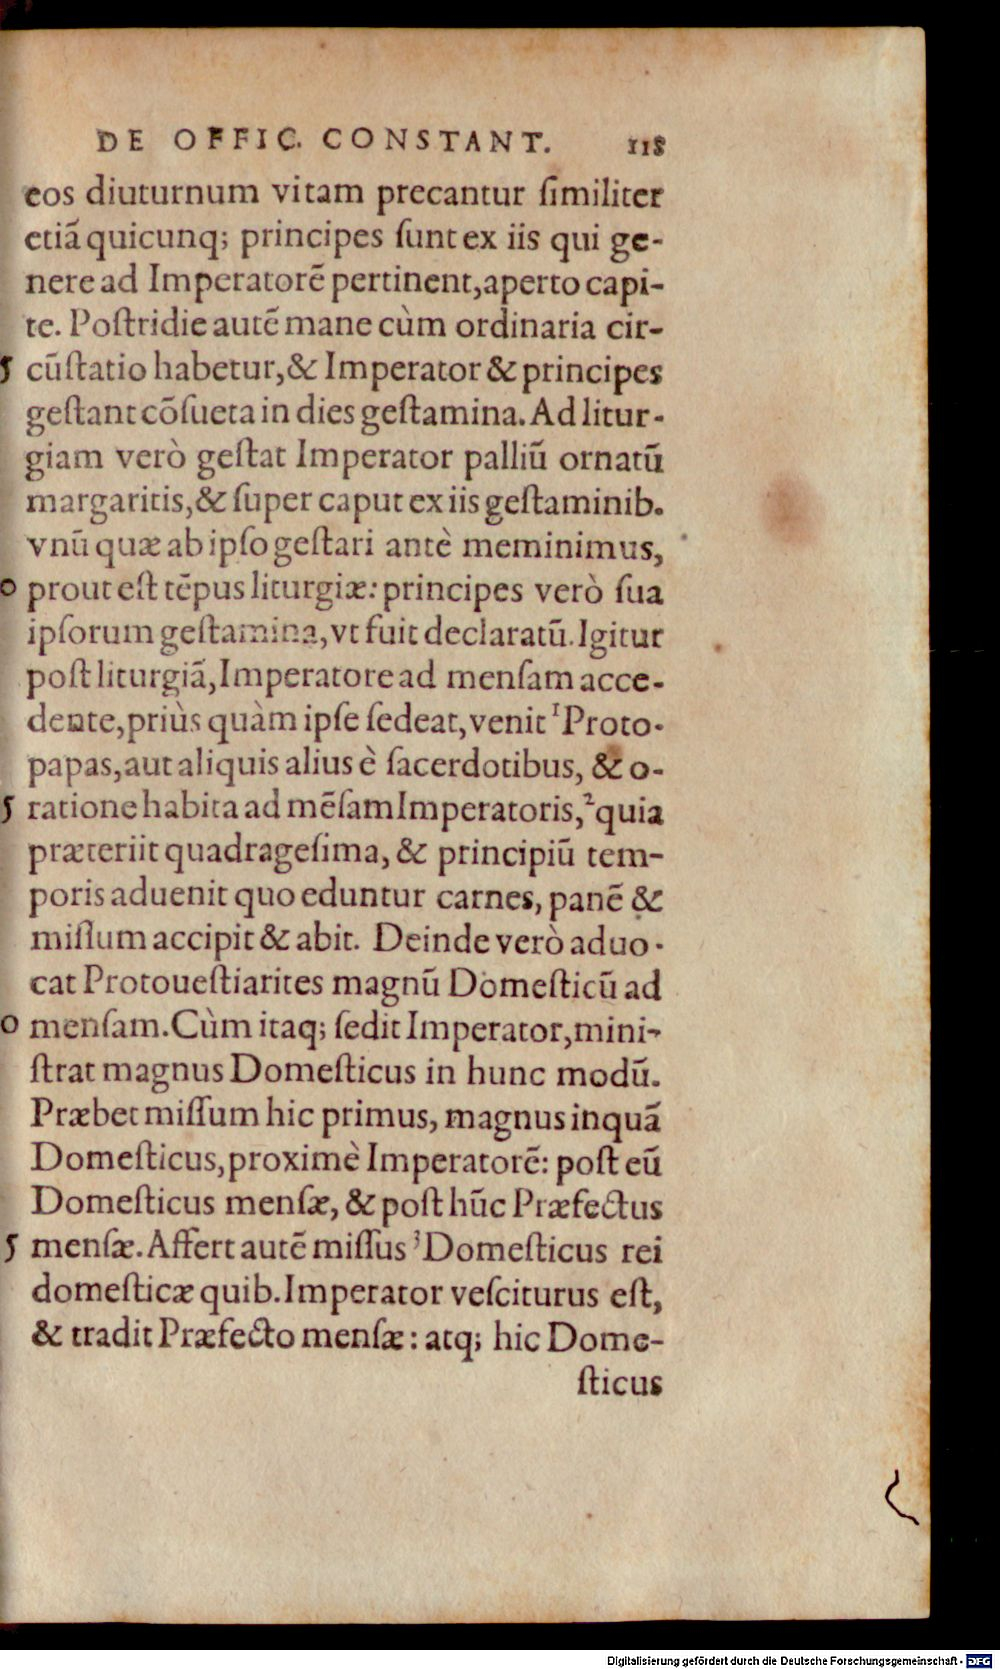 DE OFFIC. CONSTANT. 118
eos diuturnum vitam precantur ſimiliter
etiā quicunq; principes ſunt ex iis qui ge-
nere ad Imperatorē pertinent, aperto capi-
te. Poſtridie autē mane cùm ordinaria cir-
5 cūſtatio habetur, & Imperator & principes
geſtant cōſueta in dies geſtamina. Ad litur-
giam verò geſtat Imperator palliū ornatū
margaritis, & ſuper caput ex iis geſtaminib.
vnū quæ ab ipſo geſtari antè meminimus,
0 prout eſt tēpus liturgiæ: principes verò ſua
ipſorum geſtamina, vt fuit declaratū. Igitur
poſt liturgiā, Imperatore ad menſam acce-
dente, priùs quàm ipſe ſedeat, venit ¹Proto-
papas, aut aliquis alius è ſacerdotibus, & o-
5 ratione habita ad mēſam Imperatoris, ²quia
præteriit quadrageſima, & principiū tem-
poris aduenit quo eduntur carnes, panē &
miſſum accipit & abit. Deinde verò aduo-
cat Protoueſtiarites magnū Domeſticū ad
0 menſam. Cùm itaq; ſedit Imperator, mini-
ſtrat magnus Domeſticus in hunc modū.
Præbet miſſum hic primus, magnus inquā
Domeſticus, proximè Imperatorē: poſt eū
Domeſticus menſæ, & poſt hūc Præfectus
5 menſæ. Affert autē miſſus ³Domeſticus rei
domeſticæ quib. Imperator veſciturus eſt,
& tradit Præfecto menſæ: atq; hic Dome-
ſticus
Digitalisierung gefördert durch die Deutsche Forschungsgemeinschaft - DFG